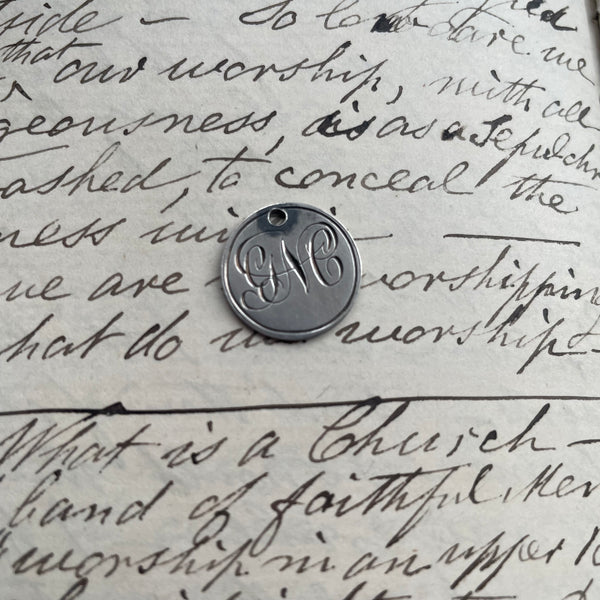 side — So
that our worship, with all
geousness, is as a Sepulchr
ashed, to conceal the
ness
we are worshipping
hat do worship —
GNC
What is a Church —
band of faithful Men
worship in an upper